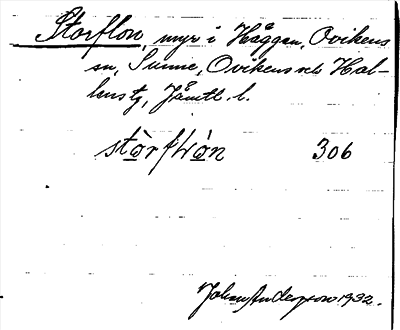 Storflon, myr i Häggen, Ovikens
sn, Sunne, Ovikens och Hal-
lens tg, Jämtl. l.
stòrfʟòn 306
Johan Anderson 1932.